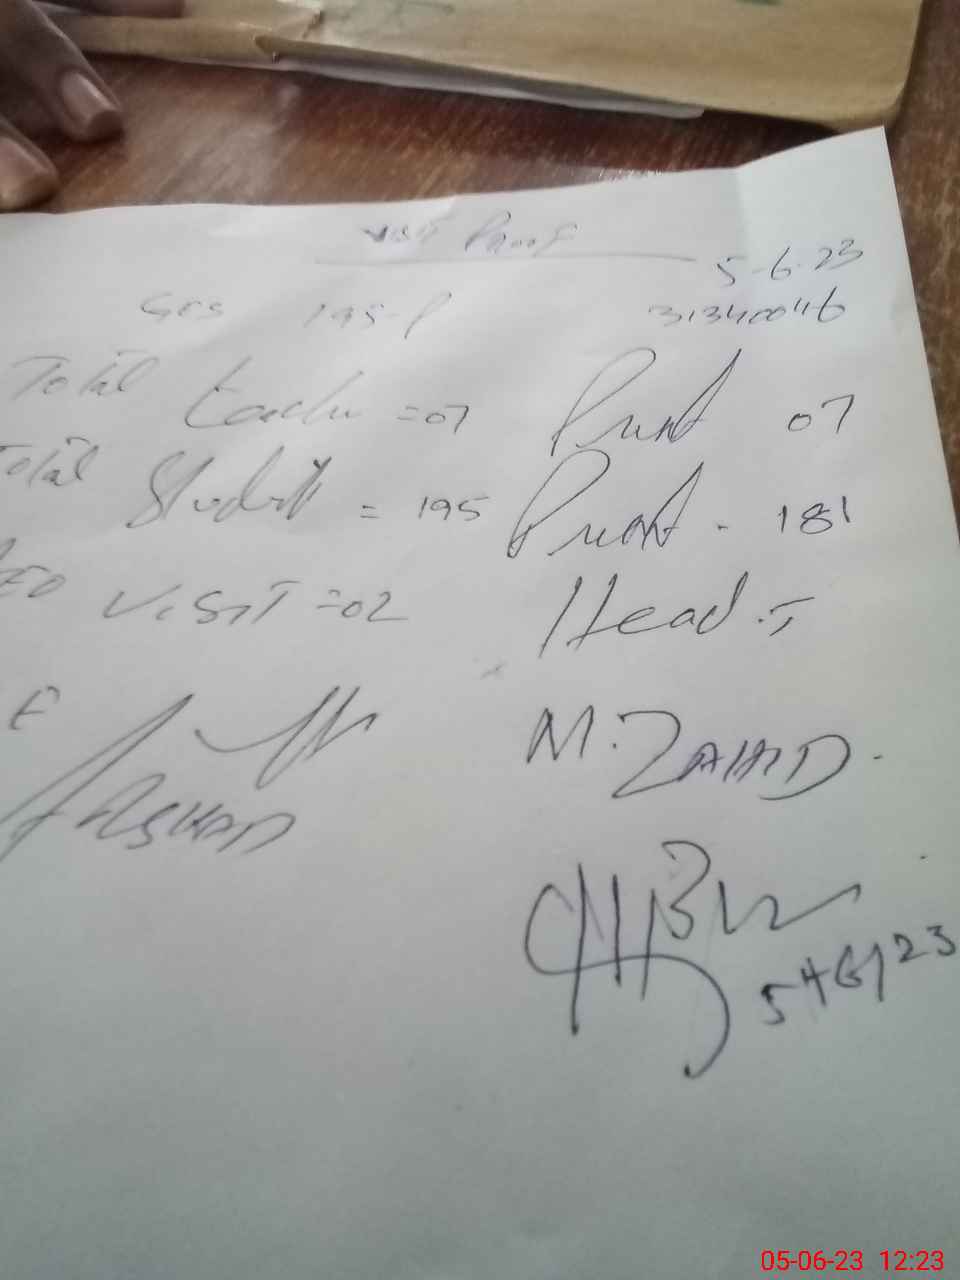 Visit Proof
5-6-23
GES 195-P 31340046
Total teacher =07 Present 07
Total Student = 195 Present - 181
AEO VISIT =02 Head.T
M. ZAHID.
ARSHAD
5/6/23
05-06-23 12:23